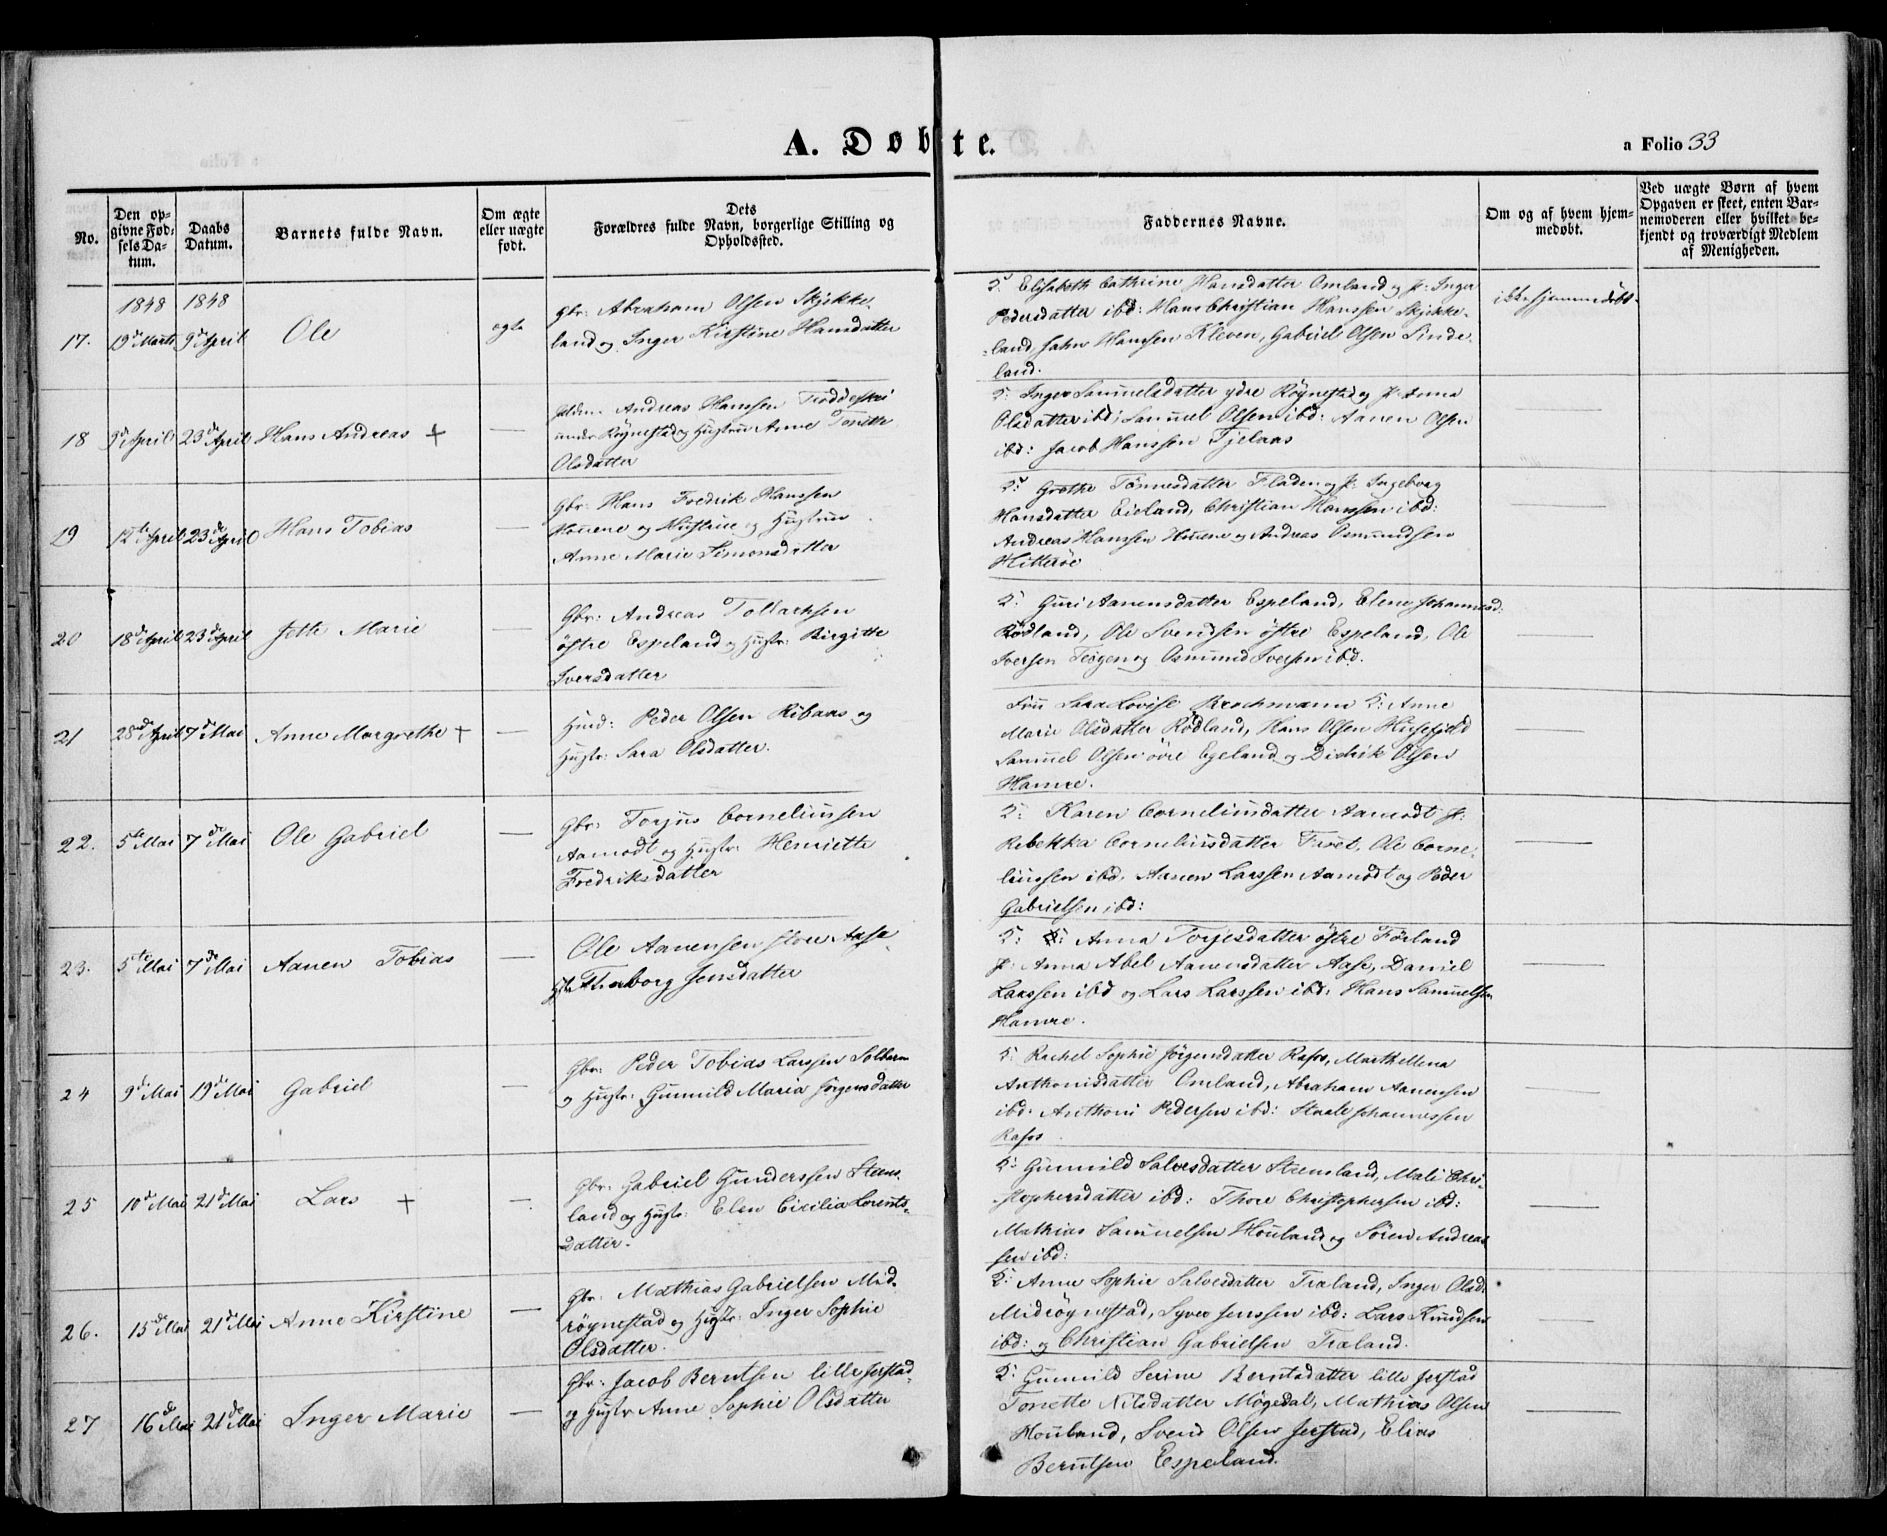 A. Døbte.
a Folio 33
No.
Den op-
givne Fød-
sels Da-
tum.
Daabs
Datum.
Barnets fulde Navn.
Om ægte
eller uægte
født.
Dets
Forældres fulde Navn, borgerlige Stilling og
Opholdssted.
Faddernes Navne.
Om og af hvem hjem-
medøbt.
Ved uægte Børn af hvem
Opgaven er skeet, enten Bar-
nemoderen eller hvilket be-
kjendt og troværdigt Medlem
af Menigheden.
1848 1848
17. 19de Marts 9de April Ole ægte
Gbr: Abraham Olsen Skjekke-
land og Inger Kirstine Hansdatter
Elisabeth Cathrine Hansdatter Omland og P: Inger
Pedersdatter ibd: Hans Christian Hanssen Skjekke-
land, John Hanssen Kleven, Gabriel Olsen Sinde-
land.
ikke hjemmedøbt.
18 9de April 23de April Hans Andreas + —
Andreas Hanssen
under Røynestad og Hustru Anne Tonette
Olsdatter
Inger Samuelsdatter ydre Røynestad og P: Anna
Olsdatter ibd: Samuel Olsen ibd: Aanen Olsen
ibd: Jacob Hanssen Tjelaas
—
19 12te April 23de April Hans Tobias —
Gbr: Hans Fredrik Hanssen
Houene og Hustru
Anne Marie Simonsdatter
Grethe Tønnesdatter Fladen og P: Ingeborg
Hansdatter Eieland, Christian Hanssen ibd:
Andreas Hanssen Houene og Andreas Osmundsen
Hitterøe
—
20 18de April 23de April Jette Marie —
Gbr: Andreas Tollaksen
østre Espeland og Hustr: Birgitte
Iversdatter
Guri Aanensdatter Espeland, Elene Johannesd:
Rødland, Ole Svendsen østre Espeland, Ole
Iversen Teigen og Osmund Iversen ibd.
—
21 28de April 7de Mai Anne Margrethe + —
Huusd: Peder Olsen Ribaas og
Hustr: Sara Olsdatter.
Fru Sara Lovise Brochmann Anne
Marie Olsdatter Rødland, Hans Olsen Husefjeld
Samuel Olsen øvre Egeland og Didrik Olsen
Hamre.
—
22. 5te Mai 7de Mai Ole Gabriel —
Gbr: Torjus Corneliussen
Aamodt og Hustr: Henriette
Fredriksdatter
Karen Corneliusdatter Aamodt P:
Rebekka Corneliusdatter Tvet, Ole Corne-
liussen ibd. Aanen Larssen Aamodt og Peder
Gabrielsen ibd:
—
23. 5te Mai 7de Mai Aanen Tobias —
Ole Aanensen store Aase
Thaborg Jensdatter
Anna Torjesdatter østre Førland
P: Anna Abel Aanensdatter Aase, Daniel
Larssen ibd og Lars Larssen ibd: Hans Samuelsen
Hamre.
—
24 9de Mai 19de Mai Gabriel —
Gbr: Peder Tobias Larssen Solberg
og Hustr: Gunnild Maria Jørgensdatter
Rachel Sophie Jørgensdatter Rafos, Marthe Elena
Anthonisdatter Omland, Abraham Aanensen
ibd: Anthoni Pedersen ibd: Staale Johannessen
Rafos
—
25 10de Mai 21de Mai Lars + —
Gbr: Gabriel Gunderssen Strøms-
land og Hustr: Elen Cicilia Lorents-
datter.
Gunnild Salvesdatter Strømsland, Mali Chri-
stophersdatter ibd: Thore Christophersen ibd:
Mathias Samuelsen Houland og Søren Andreas-
sen ibd:
—
26. 15de Mai 21de Mai Anne Kirstine —
Gbr: Mathias Gabrielsen Mid-
røynestad og Hustr: Inger Sophie
Olsdatter.
Anne Sophie Salvesdatter Træland, Inger Olsd:
Midrøynestad, Syver Jenssen ibd: Lars Knudsen
ibd: og Christian Gabrielsen Træland.
—
27 16de Mai 21de Mai Inger Marie —
Gbr: Jacob Berntsen lille Jerstad
og Hustr Anne Sophie Olsdatter
Gunnild Serine Berntsdatter lille Jerstad
Tonette Nilsdatter Møgedal, Mathias Olsen
Houland, Svend Olsen Jerstad, Elias
Berntsen Espeland.
—